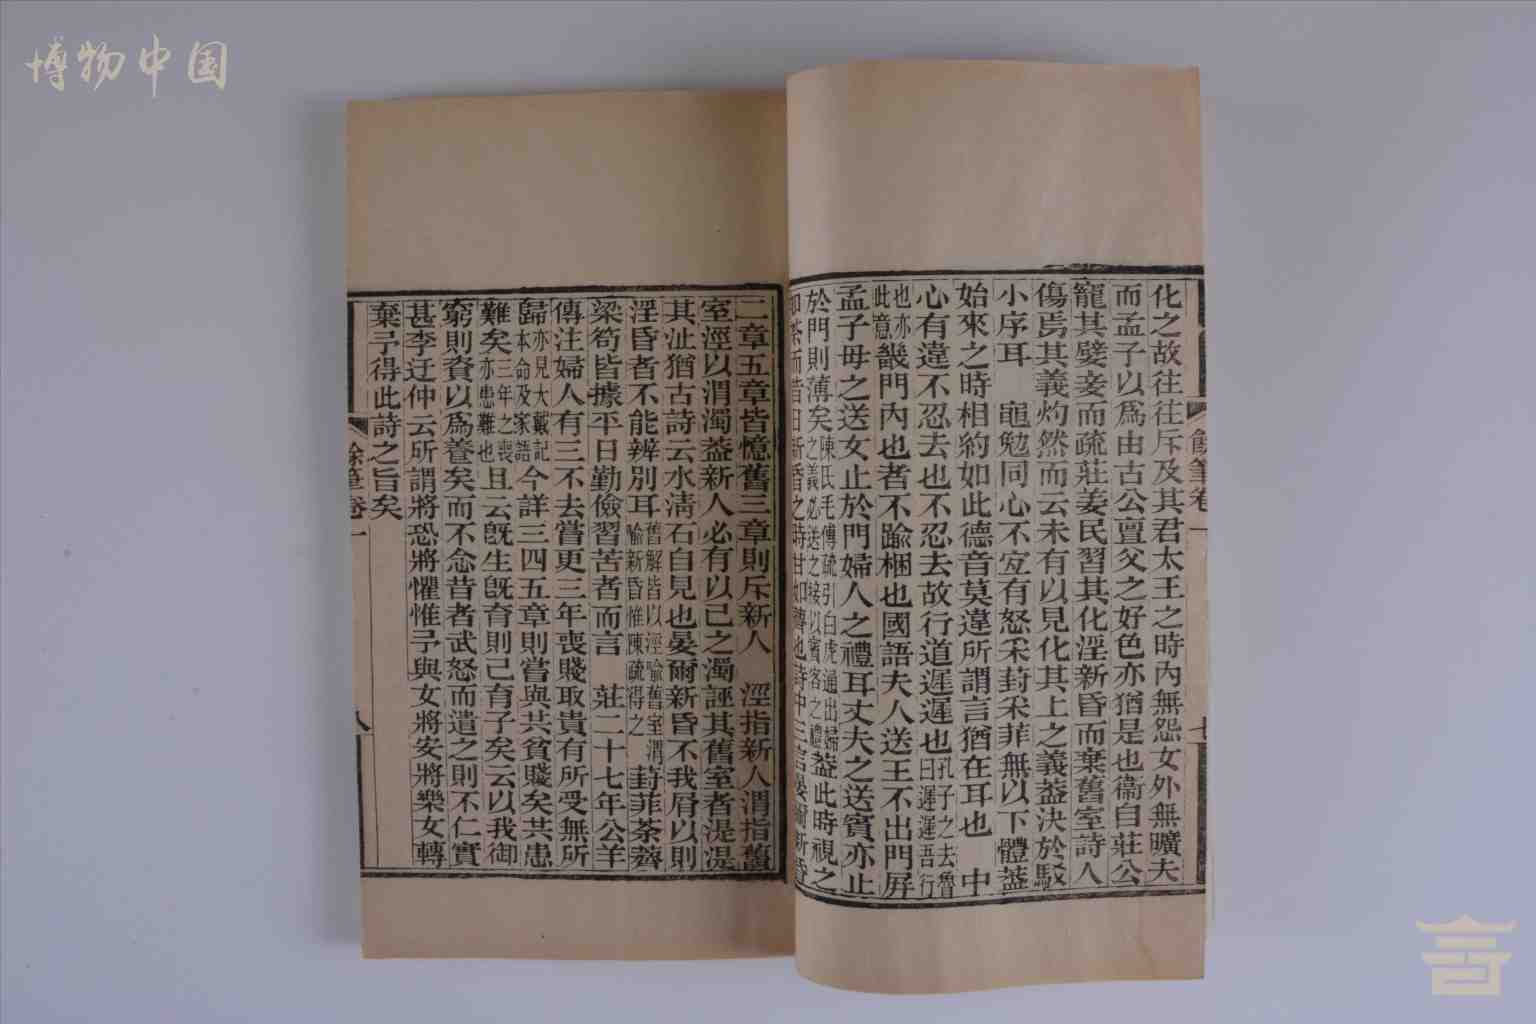 博物中国
化之故往往斥及其君太王之時內無怨女外無曠夫
而孟子以爲由古公亶父之好色亦猶是也衞自莊公
寵其嬖妾而疏莊姜民習其化淫新昏而棄舊室詩人
傷焉其義灼然而云未有以見化其上之義葢決於駁
小序耳 黽勉同心不宜有怒采葑采菲無以下體葢
始來之時相約如此德音莫違所謂言猶在耳也 中
心有違不忍去也不忍去故行道遲遲也孔子之去魯曰遲遲吾行
也亦此意畿門內也者不踰梱也國語夫人送王不出門屏
孟子母之送女止於門婦人之禮耳丈夫之送賓亦止
於門則薄矣陳氏毛傳疏引白虎通出婦之義必送之接以賓客之禮葢此時視之
如荼而昔日新昏之時甘如薺也詩中三言宴爾新昏
餘筆卷一
七
二章五章皆憶舊三章則斥新人 涇指新人渭指舊
室涇以渭濁葢新人必有以己之濁誣其舊室者湜湜
其沚猶古詩云水淸石自見也宴爾新昏不我屑以則
淫昏者不能辨別耳舊解皆以涇喻舊室渭喻新昏惟陳疏得之 葑菲荼薺
梁笱皆據平日勤儉習苦者而言 莊二十七年公羊
傳注婦人有三不去嘗更三年喪賤取貴有所受無所
歸亦見大戴記本命及家語今詳三四五章則嘗與共貧賤矣共患
難矣三年之喪亦患難也且云旣生旣育則己育子矣云以我御
窮則資以爲養矣而不念昔者武怒而遣之則不仁實
甚李迂仲云所謂將恐將懼惟予與女將安將樂女轉
棄予得此詩之旨矣
餘筆卷一
八